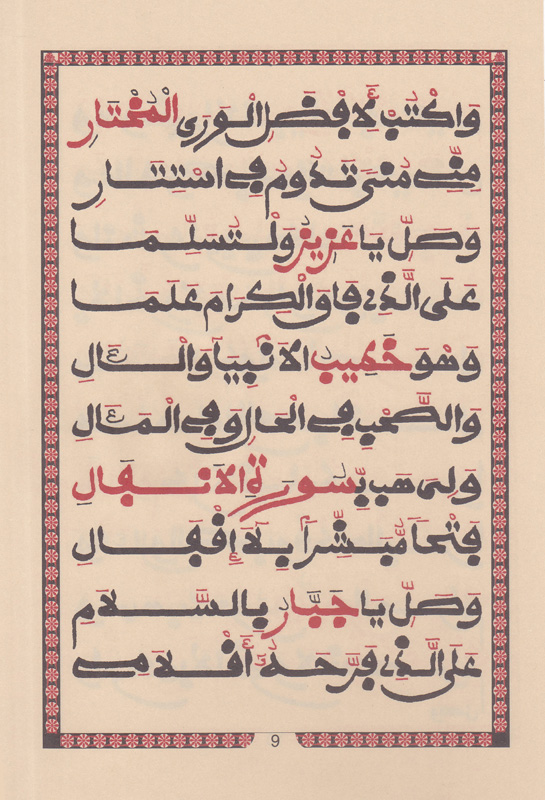 وَاكْتُبْ لِأَفْضَلِ الْوَرَى الْمُخْتَارِ
مِنِّي مُنًى تَدُومُ فِي اسْتِتَارِ
وَصَلِّ يَا عَزِيزُ وَلْتُسَلِّمَا
عَلَى الَّذِي فَاقَ الْكِرَامَ عَلَمَا
وَهْوَ خَطِيبُ الَانْبِيَا وَالْـَالِ
وَالصَّحْبِ فِي الْحَالِ وَفِي الْمَـَالِ
وَلِيَ هَبْ بِسُورَةِ الَانْفَالِ
فَتْحاً مُّبَشِّراً بِلَا إِقْفَالِ
وَصَلِّ يَا جَبَّارُ بِالسَّلَامِ
عَلَى الَّذِي فَرَّحَهُ أَقْلَامِي
9